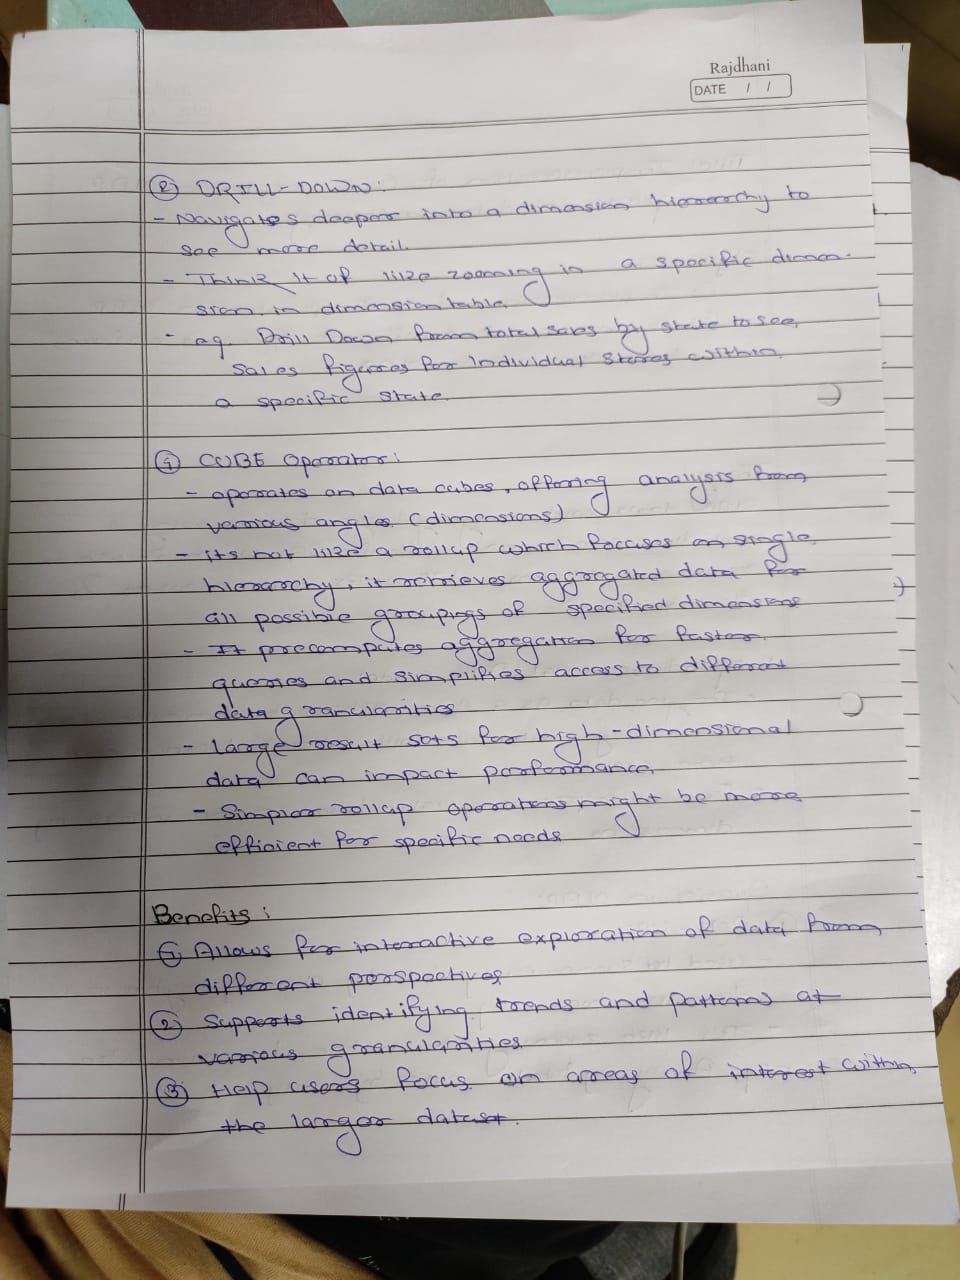 Rajdhani
DATE / /
② DRILL-DOWN:
- Navigates deeper into a dimension hierarchy to
see more detail.
- Think it of like zooming in a specific dimen-
sion in dimension table.
- eg. Drill Down from total sales by state to see,
sales figures for individual stores within
a specific state.
④ CUBE Operator:
- operates on data cubes, offering analysis from
various angles (dimensions)
- its not like a rollup which focuses on single
hierarchy, it retrieves aggregated data for
all possible groupings of specified dimensions
- It precomputes aggregation for faster
queries and simplifies access to different
data granularities
- Large result sets for high-dimensional
data can impact performance.
- Simpler rollup operations might be more
efficient for specific needs
Benefits:
① Allows for interactive exploration of data from
different perspectives
② Supports identifying trends and patterns at
various granularities
③ Help users focus on areas of interest within
the larger dataset.